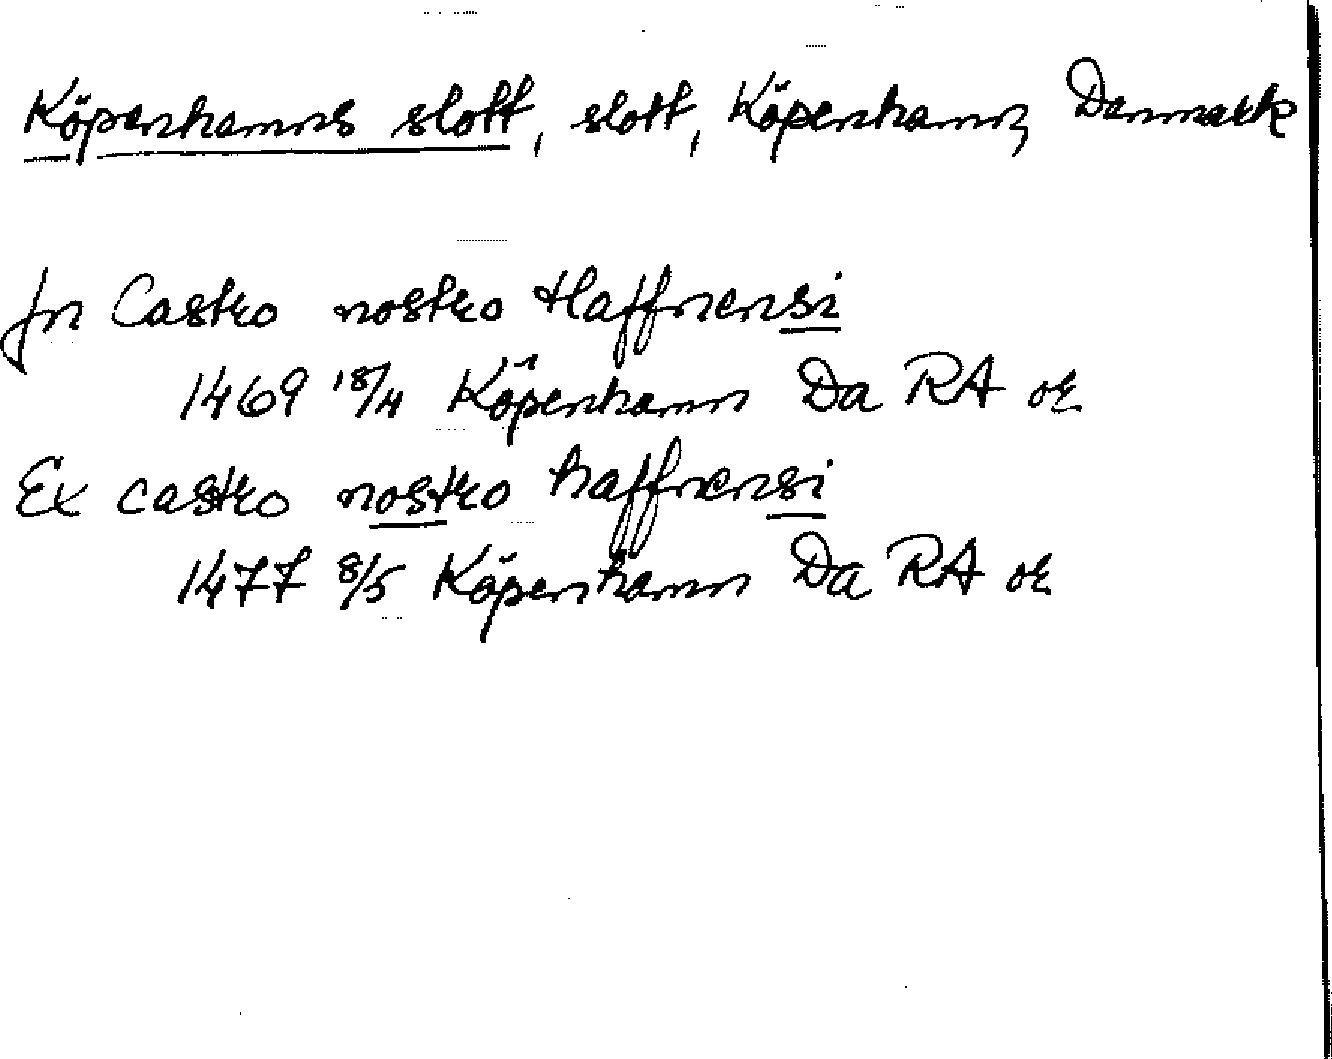 Köpenhamns slott, slott, Köpenhamn, Danmark
In Castro nostro Haffnensi
1469 18/4 Köpenhamn Da RA or
Ex castro nostro haffnensi
1477 8/5 Köpenhamn Da RA or